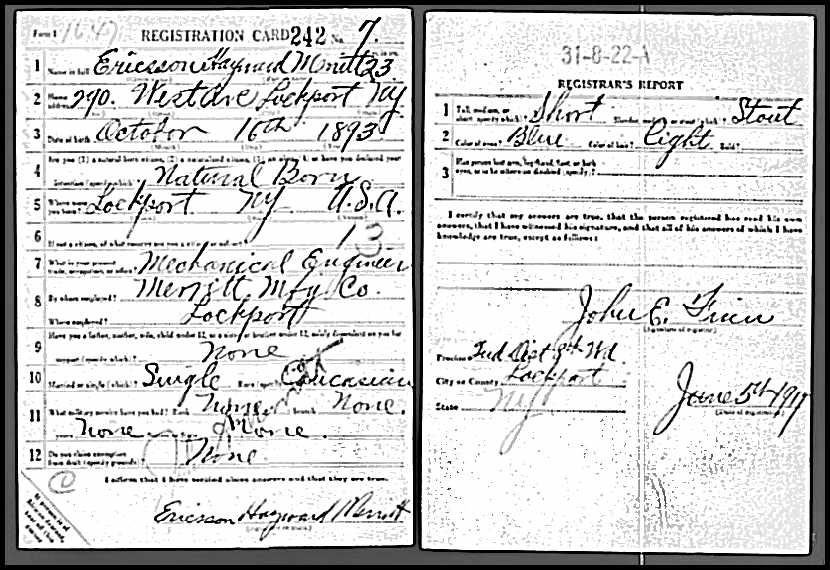 Form 1 1647 REGISTRATION CARD 242 No. 7.
1 Name in full Ericsson Hayward Merritt 23
2 Home address 290. West Ave Lockport NY
3 Date of birth October 16th 1893
4 Are you (1) a natural born citizen, (2) a naturalized citizen, (3) an alien, 4) or have you declared your
intention (specify which)? Natural Born
5 Where were you born? Lockport NY U.S.A.
6 If not a citizen, of what country are you a citizen or subject? 13
7 What is your present trade, occupation, or office? Mechanical Engineer
8 By whom employed? Merritt Mfg. Co.
Where employed? Lockport
9 Have you a father, mother, wife, child under 12, or a sister or brother under 12, solely dependent on you for
support (specify which)? None
10 Married or single (which)? Single Race (specify which)? Caucasian
11 What military service have you had? Rank None branch None.
None None.
12 Do you claim exemption from draft (specify grounds)? None
I affirm that I have verified above answers and that they are true.
Ericsson Hayward Merritt
31-8-22-A
REGISTRAR'S REPORT
1 Tall, medium, or short (specify which)? Short Slender, medium, or stout (which)? Stout
2 Color of eyes? Blue Color of hair? Light Bald?
3 Has person lost arm, leg, hand, foot, or both
eyes, or is he otherwise disabled (specify)?
I certify that my answers are true, that the person registered has read his own
answers, that I have witnessed his signature, and that all of his answers of which I have
knowledge are true, except as follows:
John E.
(Signature of registrar)
Precinct 2nd Dist 8th Wd.
City or County Lockport
State NY
June 5th-1917
(Date of registration)